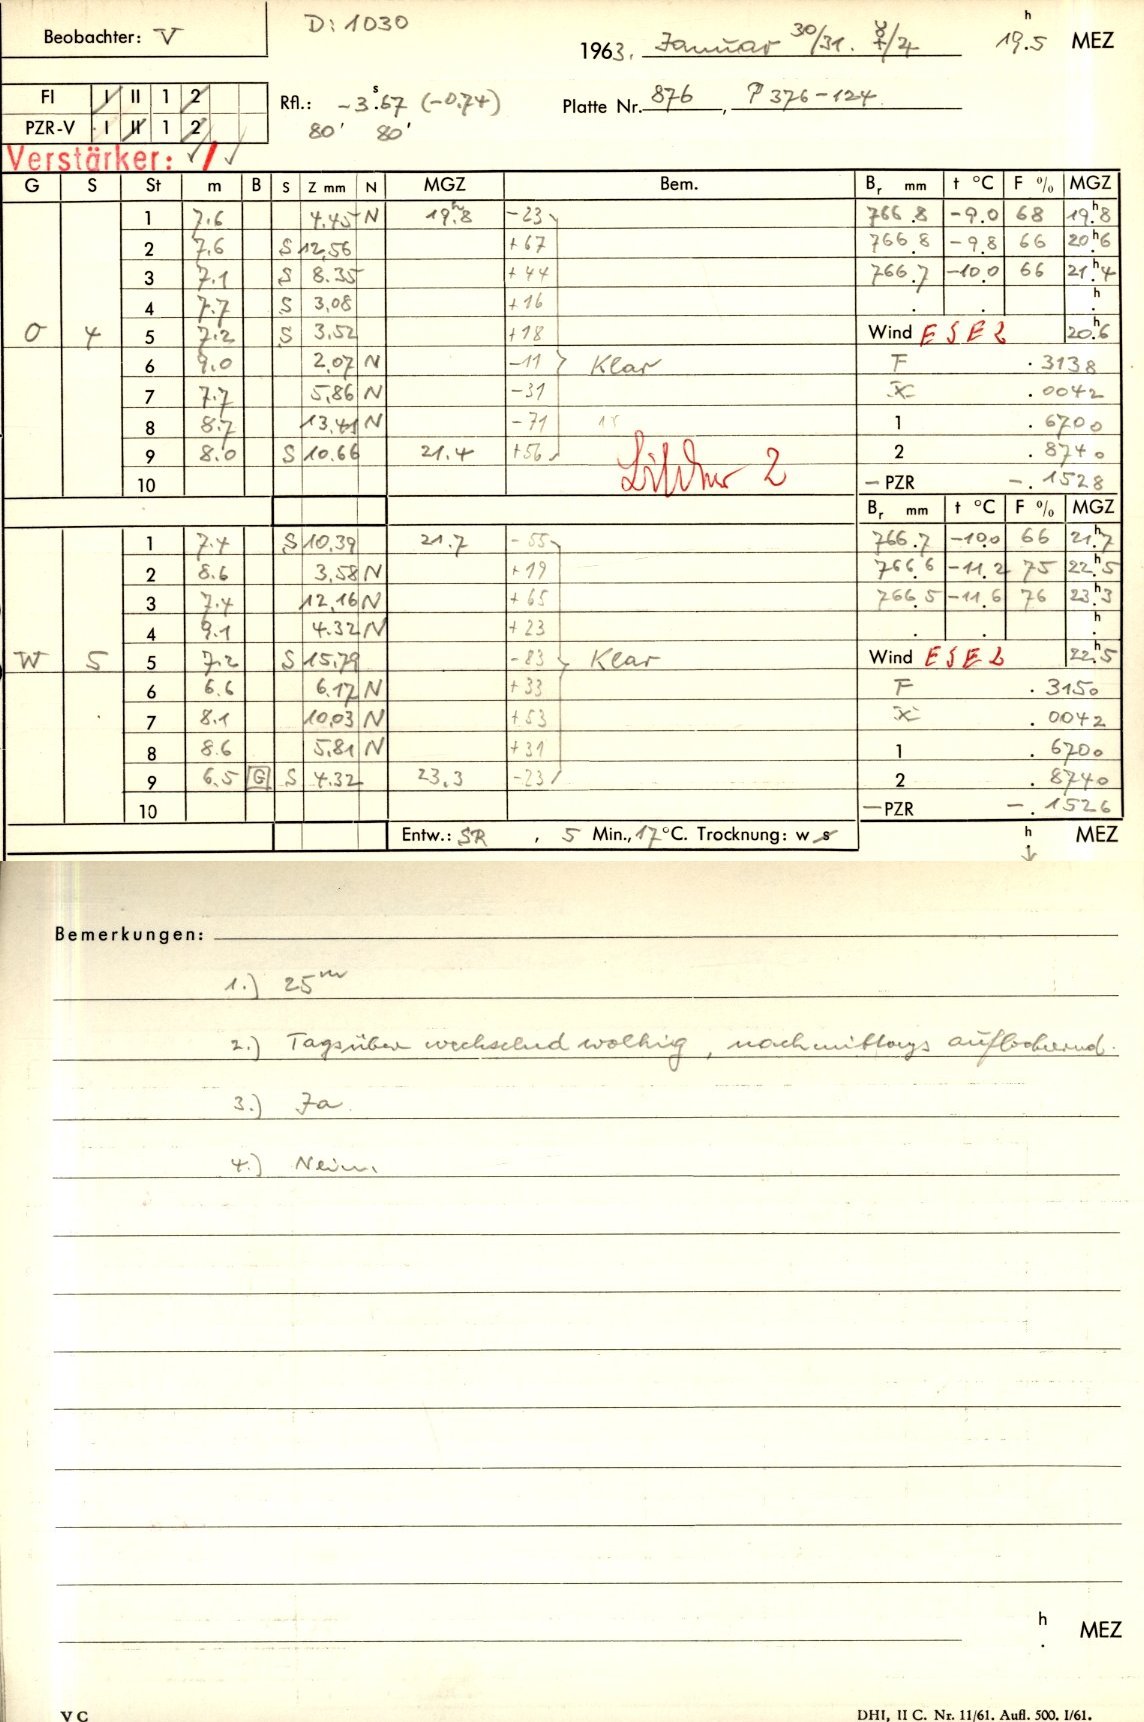 D: 1030
Beobachter: V
1963, Januar 30/31. ☿/4 19h.5 MEZ
FI I II 1 2
PZR-V I II 1 2
Rfl.: -3s.67 (-0.74)
80' 80'
Platte Nr. 876, P 376-124
Verstärker: √ / √
G S St m B S Z mm N MGZ Bem. Br mm t °C F % MGZ
1 7.6 4.45 N 19h.8 -23 766.8 -9.0 68 19h.8
2 7.6 S 12,56 +67 766.8 -9.8 66 20h.6
3 7.1 S 8.35 +44 766.7 -10.0 66 21h.4
4 7.7 S 3,08 +16 . . h.
O 4 5 7.2 S 3,52 +18 Wind ESE 2 20h.6
6 9.0 2,07 N -11 Klar F .3138
7 7.7 5,86 N -31 x .0042
8 8.7 13,41 N -71 1 .6700
9 8.0 S 10.66 21.4 +56 2 .8740
10 - PZR -.1528
Br mm t °C F % MGZ
1 7.4 S 10,39 21.7 -55 766.7 -10.0 66 21h.7
2 8.6 3,58 N +19 766.6 -11.2 75 22h.5
3 7.4 12,16 N +65 766.5 -11.6 76 23h.3
4 9.1 4.32 N +23 . . h.
W 5 5 7.2 S 15,79 -83 Klar Wind ESE 2 22h.5
6 6.6 6.17 N +33 F .3150
7 8.1 10,03 N +53 x .0042
8 8.6 5,81 N +31 1 .6700
9 6.5 G S 4.32 23,3 -23 2 .8740
10 - PZR -.1526
Entw.: SR, 5 Min., 17°C. Trocknung: w s h. MEZ
Bemerkungen:
1.) 25m
2.) Tagsüber wechselnd wolkig, nachmittags auflockernd.
3.) Ja.
4.) Nein.
h. MEZ
V C DHI, II C. Nr. 11/61. Aufl. 500. I/61.